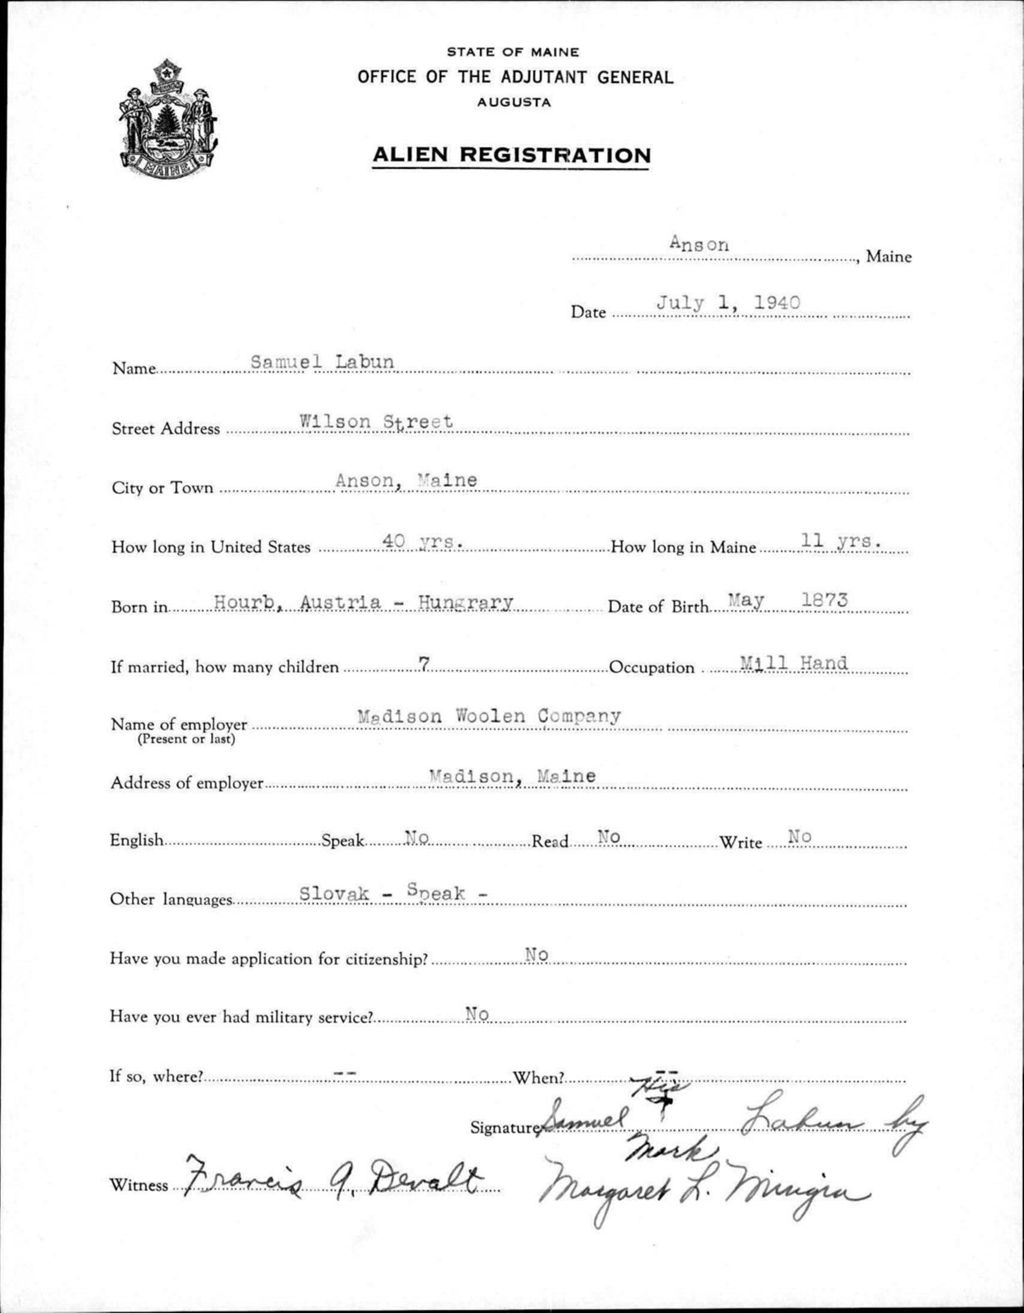 STATE OF MAINE
OFFICE OF THE ADJUTANT GENERAL
AUGUSTA
ALIEN REGISTRATION
MAINE
Anson, Maine
Date July 1, 1940
Name Samuel Labun
Street Address Wilson Street
City or Town Anson, Maine
How long in United States 40 yrs. How long in Maine 11 yrs.
Born in Hourb, Austria - Hungrary Date of Birth May 1873
If married, how many children 7 Occupation Mill Hand
Name of employer Madison Woolen Company
(Present or last)
Address of employer Madison, Maine
English Speak No Read No Write No
Other languages Slovak - Speak -
Have you made application for citizenship? No
Have you ever had military service? No
If so, where? -- When? --
His
Signature Samuel + Labun by
Mark
Witness Francis A. Devalt Margaret L.